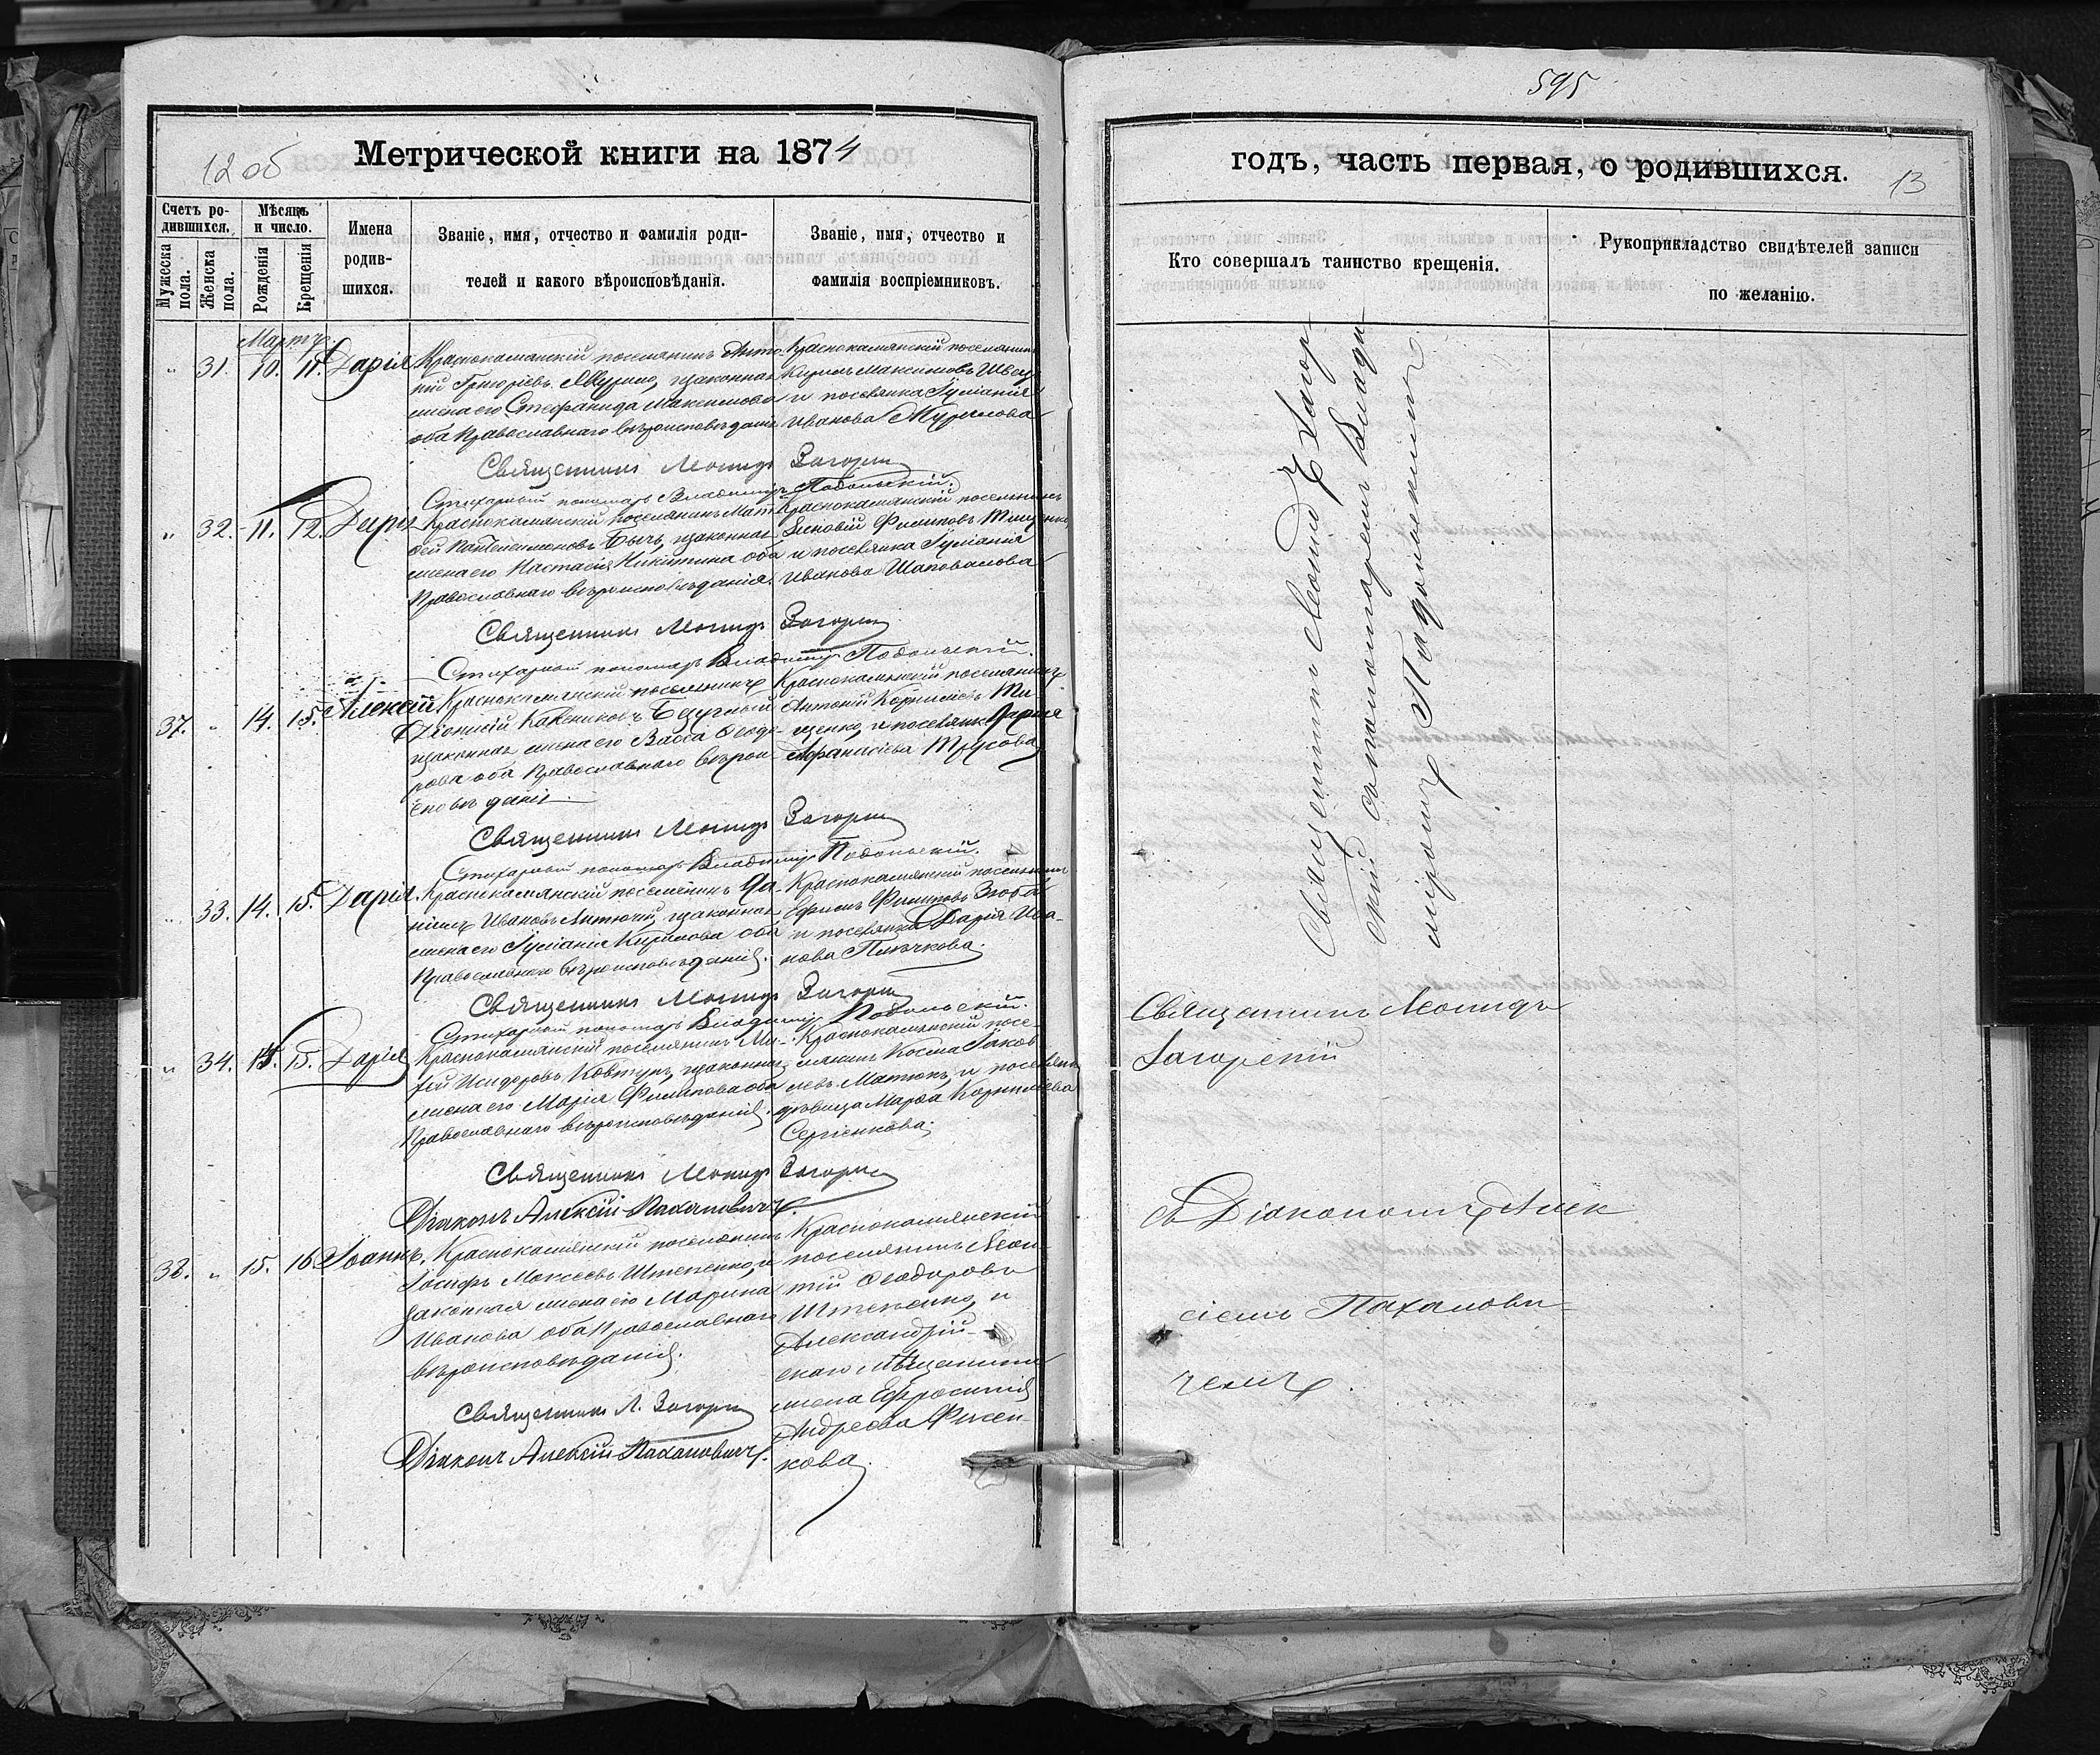 12 об
Метрической книги на 1874
Счетъ ро-
дившихся.
Мужеска
пола.
Женска
пола.
Мѣсяцъ
и число.
Рожденія
Крещенія
Имена
родив-
шихся.
Званіе, имя, отчество и фамилія роди-
телей и какого вѣроисповѣданія.
Званіе, имя, отчество и
фамилія воспріемниковъ.
Мартъ
„ 31. 10. 11. Дарія
Краснокаменскій поселянинъ Анто-
ній Григорієвъ законная
жена его Стефанида Максимова
оба Православнаго вѣроисповѣданія
Краснокамянскій поселянинъ
Кирилъ Максимовъ Швец
и поселянка Іуліанія
Иванова
Священникъ Леонидъ Загорск
Стихарный пономарь Владимиръ Подольскій.
„ 32. 11. 12.
Краснокамянскій поселянинъ Мат-
фей Пантелеимоновъ Бычъ, и законная
жена его Настасія Никитина оба
Православнаго вѣроисповѣданія.
Краснокамянскій поселянинъ
Зиновій Филиповъ Тищенко,
и поселянка Іуліанія
Иванова Шаповалова
Священникъ Леонидъ Загорск
Стихарный пономарь Владимиръ Подольскій.
37. „ 14. 15. Алексій
Краснокамянскій поселянинъ
Діонисій Бездучный
законная жена его Васса Феодо-
рова оба Православнаго вѣрои-
сповѣданія
Краснокамянскій поселянинъ
Антоній Корниліевъ Ти-
щенко, и поселянк Дарья
Афанасіева Трусова
Священникъ Леонидъ Загорск
Стихарный пономарь Владимиръ Подольскій.
„ 33. 14. 15. Дарія.
Краснокамянскій поселянинъ Да-
ніилъ Ивановъ законная
жена его Іуліанія Кирилова оба
Православнаго вѣроисповѣданія.
Краснокамянскій поселянинъ
Ефимъ Филиповъ
и поселянка Дарія Ива-
нова
Священникъ Леонидъ Загорск
Стихарный пономарь Владимиръ Подольскій.
„ 34. 15. 15. Дарія
Краснокамянскій поселянинъ
Исидоровъ Ковтунъ, законная
жена его Марія Филипова оба
Православнаго вѣроисповѣданія.
Краснокамянскій посе-
лянинъ Косма Іаков-
левъ и поселянк
дѣвица Марѳа Корниліева
Сергіенкова.
Священникъ Леонидъ Загорск
Діаконъ Алексій Пахаловичъ.
38. „ 15. 16 Іоаннъ.
Краснокамянскій поселянинъ
Іосифъ Моисеевъ Штепенко, и
законная жена его Марина
Иванова оба Православнаго
вѣроисповѣданія.
Краснокамянскій
поселянинъ Леон-
тій Феодоровъ
Штепенко, и
Александрій-
скаго мѣщанина
жена Ефросинія
Андреева Фисен-
кова.
Священникъ Л. Загорск
Діаконъ Алексій Пахаловичъ.
595
годъ, часть первая, о родившихся.
13
Кто совершалъ таинство крещенія.
Рукоприкладство свидѣтелей записи
по желанію.
Священникъ Леонид Загор-
скій съ пономаремъ Влади-
міромъ
Священникъ Леонидъ
Загорскій
съ Діакономъ Алек
сіемъ Пахалови-
чемъ.